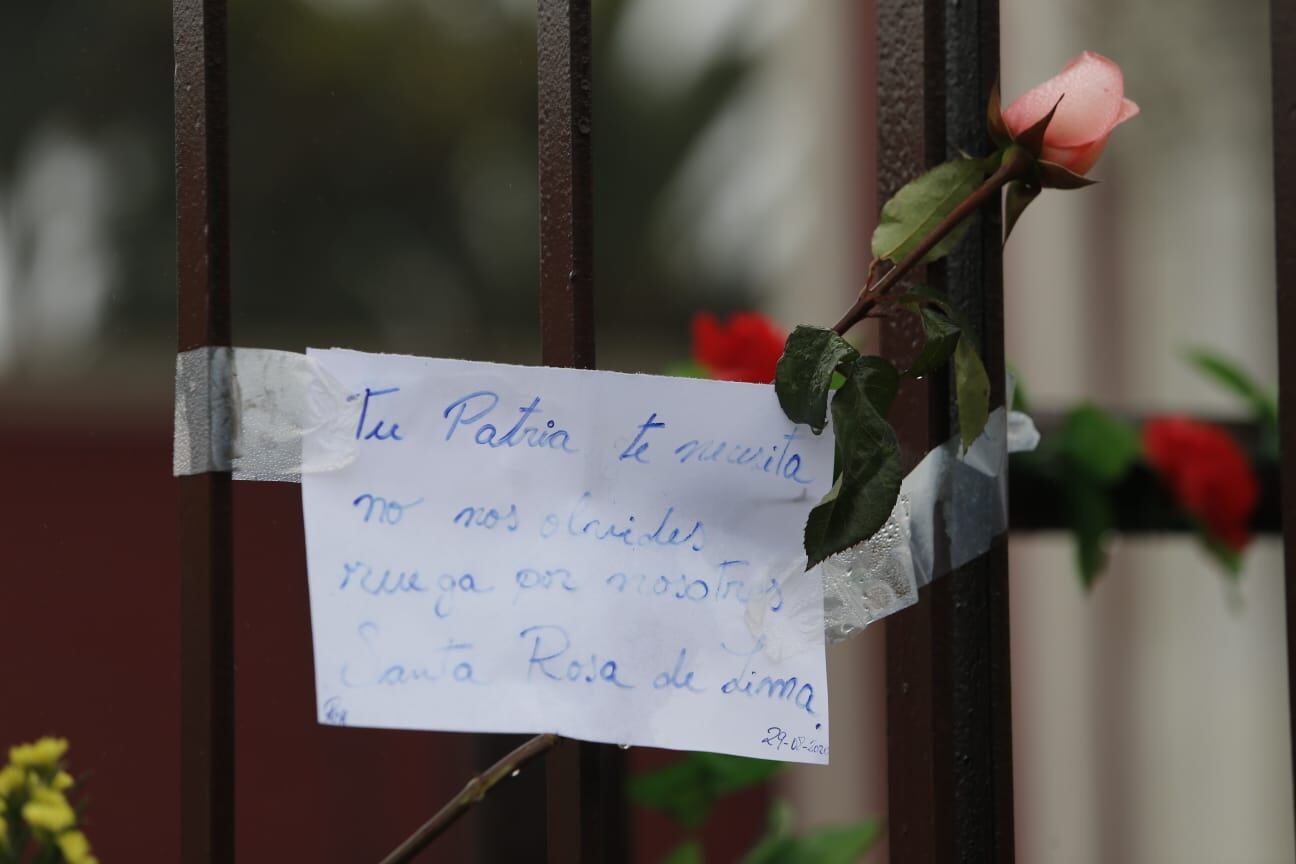 Tu Patria te necesita
no nos olvides
ruega por nosotros
Santa Rosa de Lima.
29-08-2020